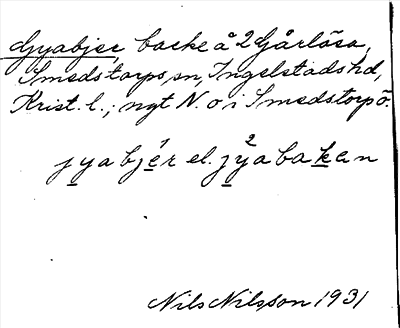 Gyabjer, backe å 2 Gårlösa,
Smedstorps sn, Ingelstads hd,
Krist. l.; ngt N. o i Smedstorp ö.
jyabjér el. jyabakan
2
Nils Nilsson 1931